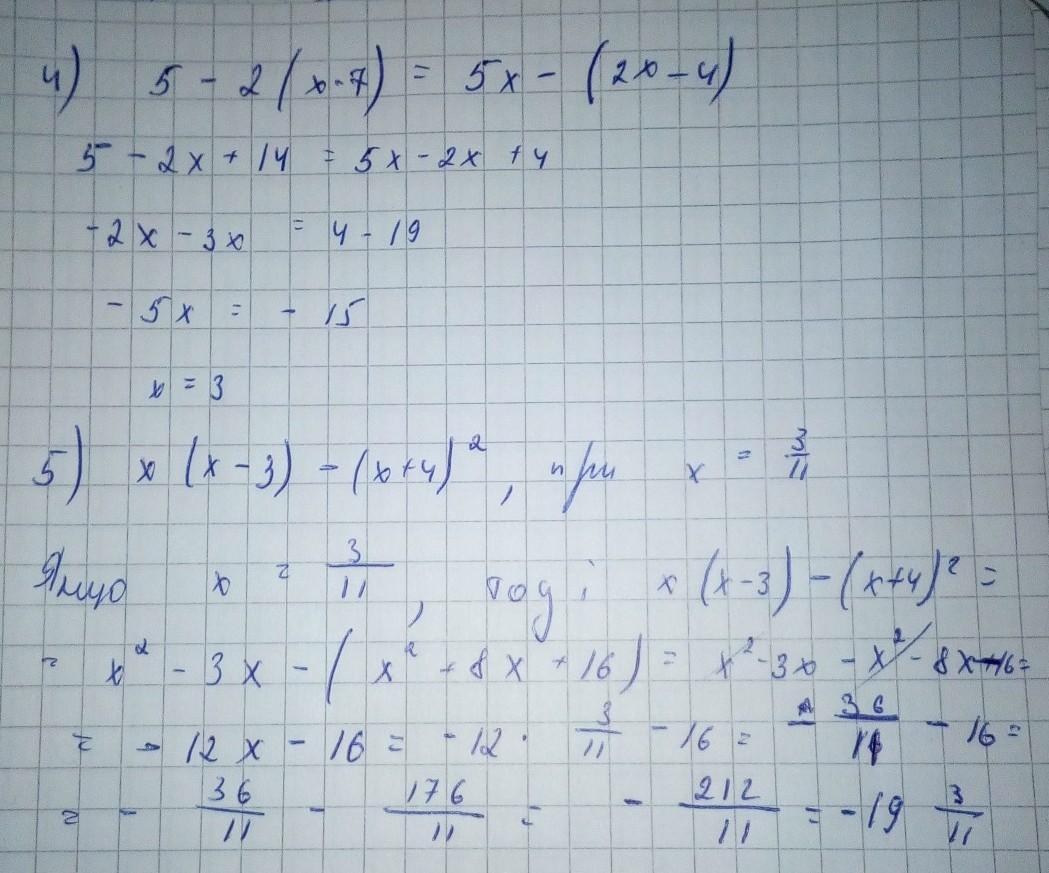 4) 5 - 2(x-7) = 5x - (2x-4)
5 - 2x + 14 = 5x - 2x + 4
-2x - 3x = 4 - 19
- 5x = - 15
x = 3
5) x (x-3) - (x+4)², при x = 3/11
Якщо x = 3/11, тоді x (x-3) - (x+4)² =
= x² - 3x - (x² + 8x + 16) = x² - 3x - x² - 8x - 16 =
= - 12x - 16 = -12 · 3/11 - 16 = - 36/11 - 16 =
= - 36/11 - 176/11 = - 212/11 = -19 3/11